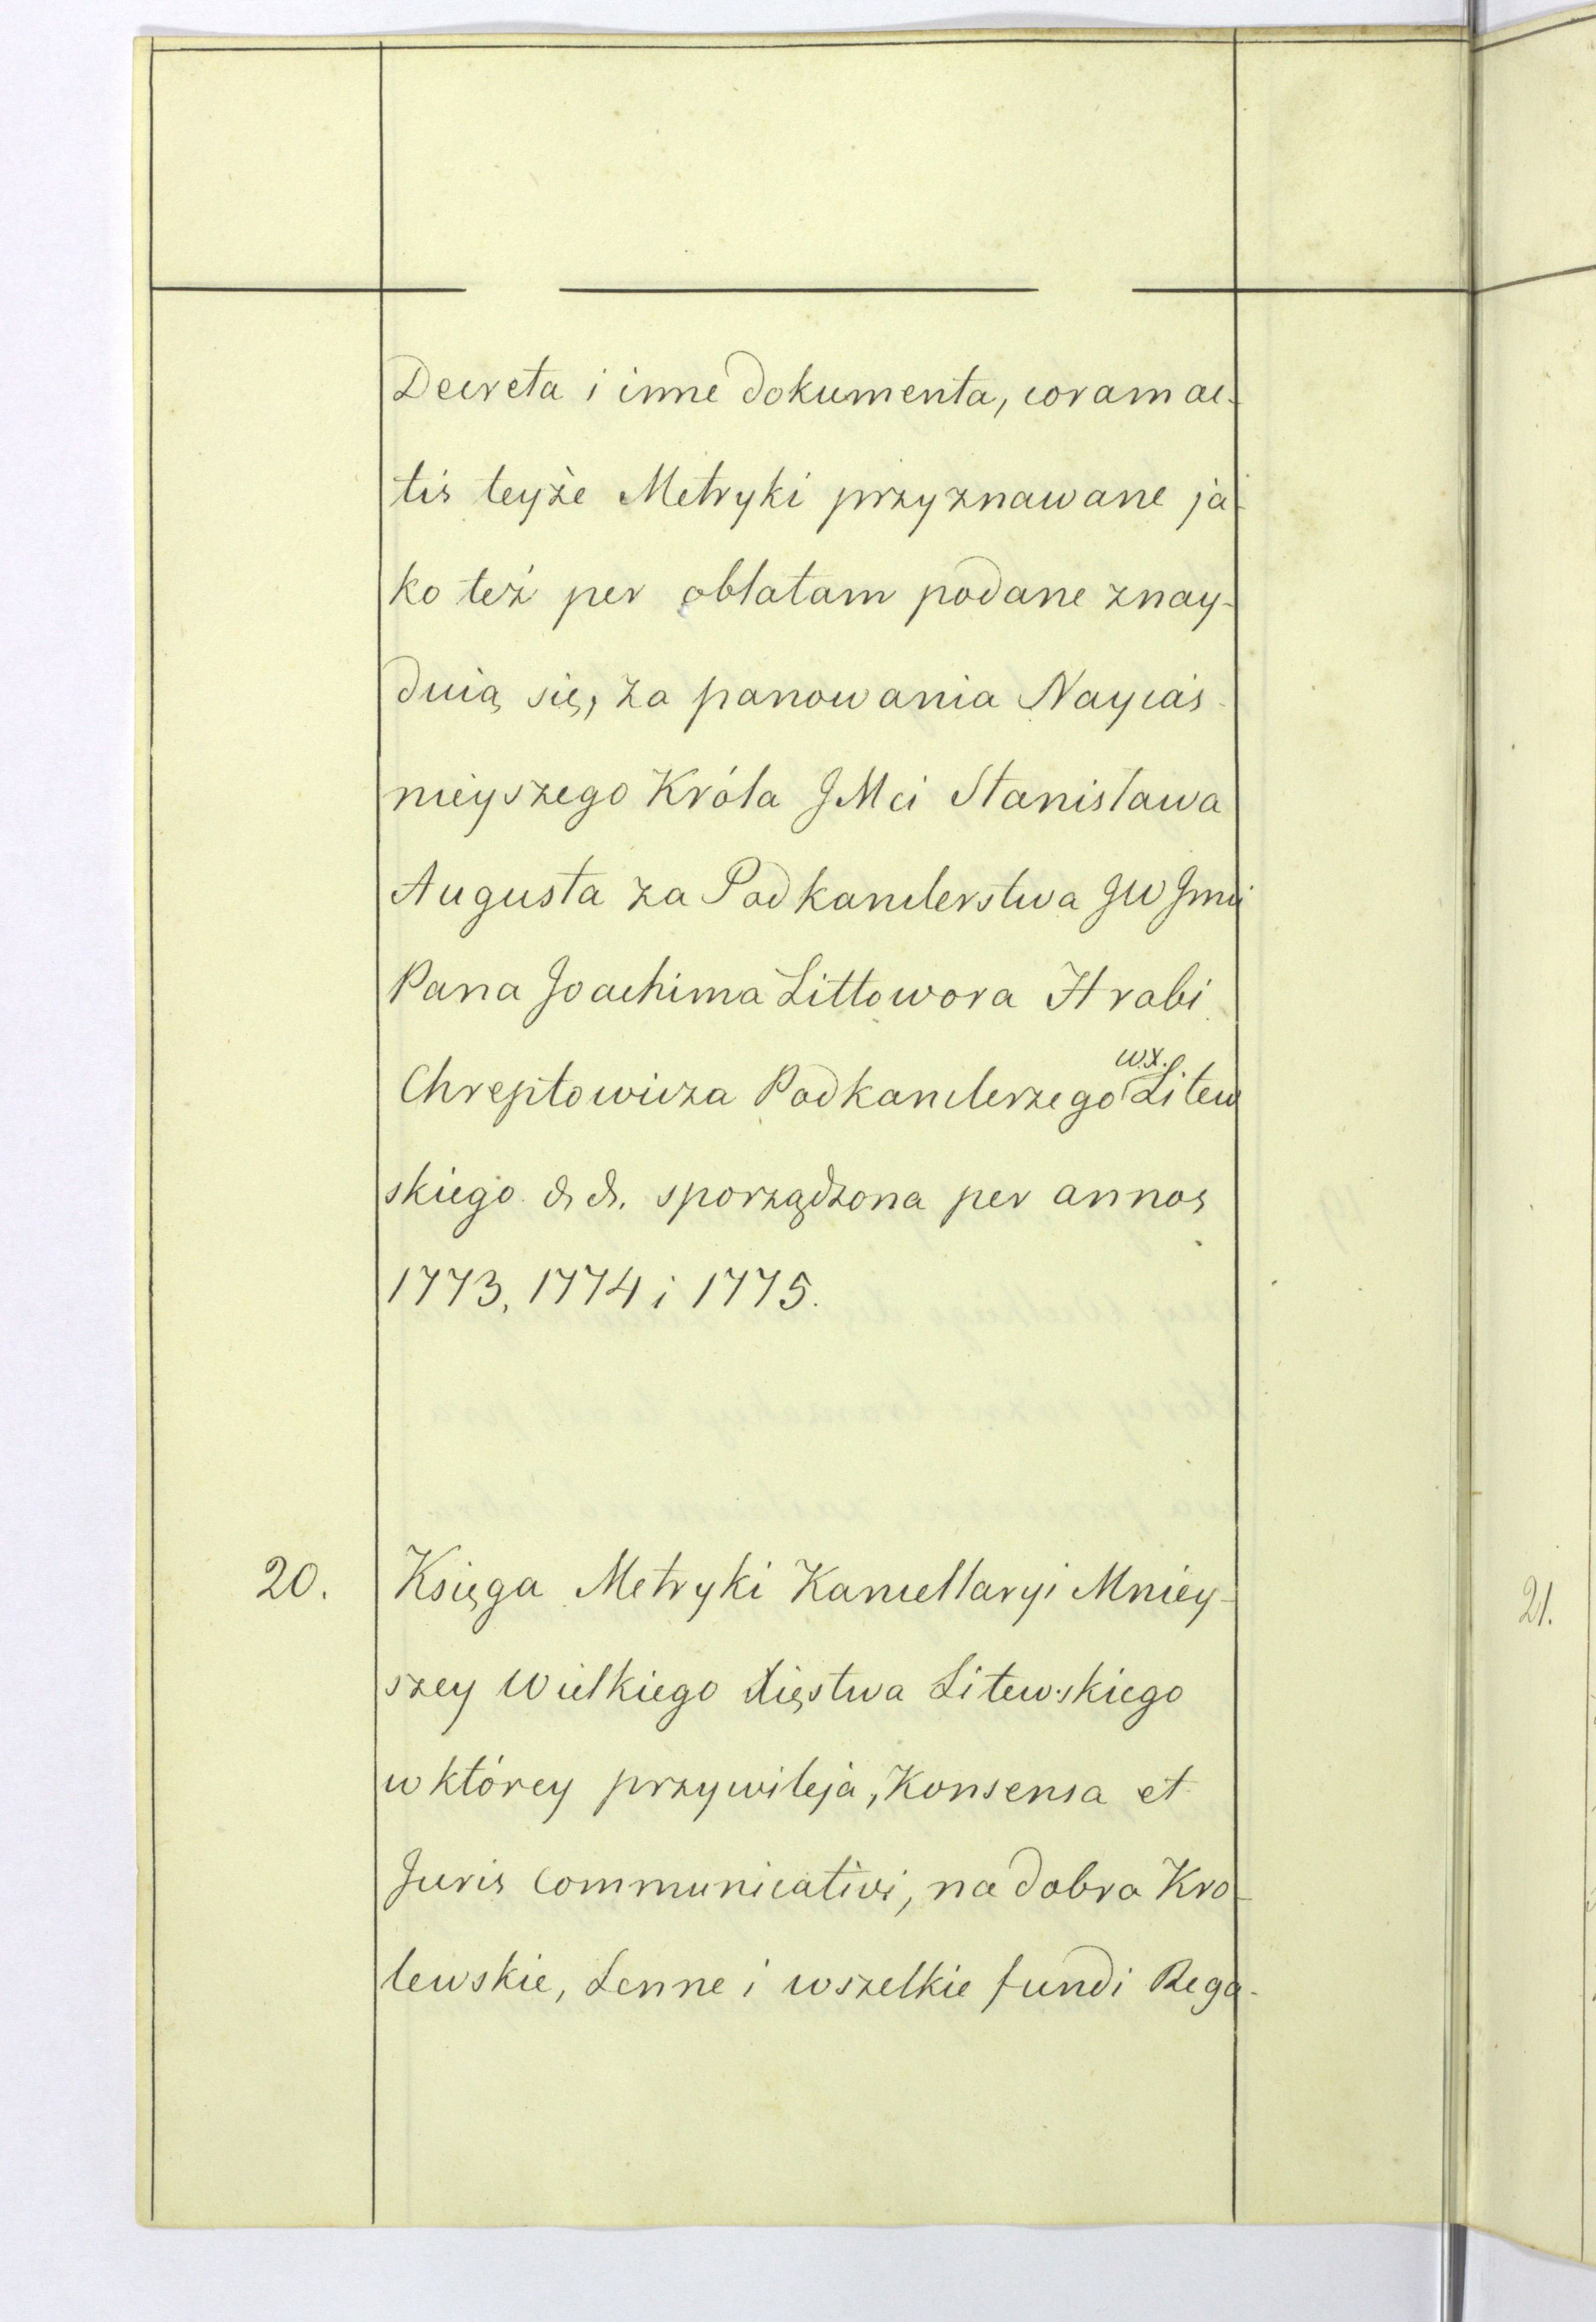 Decreta i inne dokumenta, coram ac-
tis teyże Metryki przyznawane ja-
ko też per oblatam podane znay-
duią się, za panowania Nayiaś-
nieyszego Króla JMci Stanisława
Augusta za Podkanclerstwa JW Jmci
Pana Joachima Littowora Hrabi
Chreptowicza Podkanclerzego W.X. Litew
skiego & &. sporządzona per annos
1773, 1774 i 1775.
20. Księga Metryki Kancellaryi Mniey-
szey Wielkiego Xięstwa Litewskiego
w którey przywileja, Konsensa et
Juris communicativi, na dobra Kro-
lewskie, Lenne i wszelkie fundi Rega-
21.